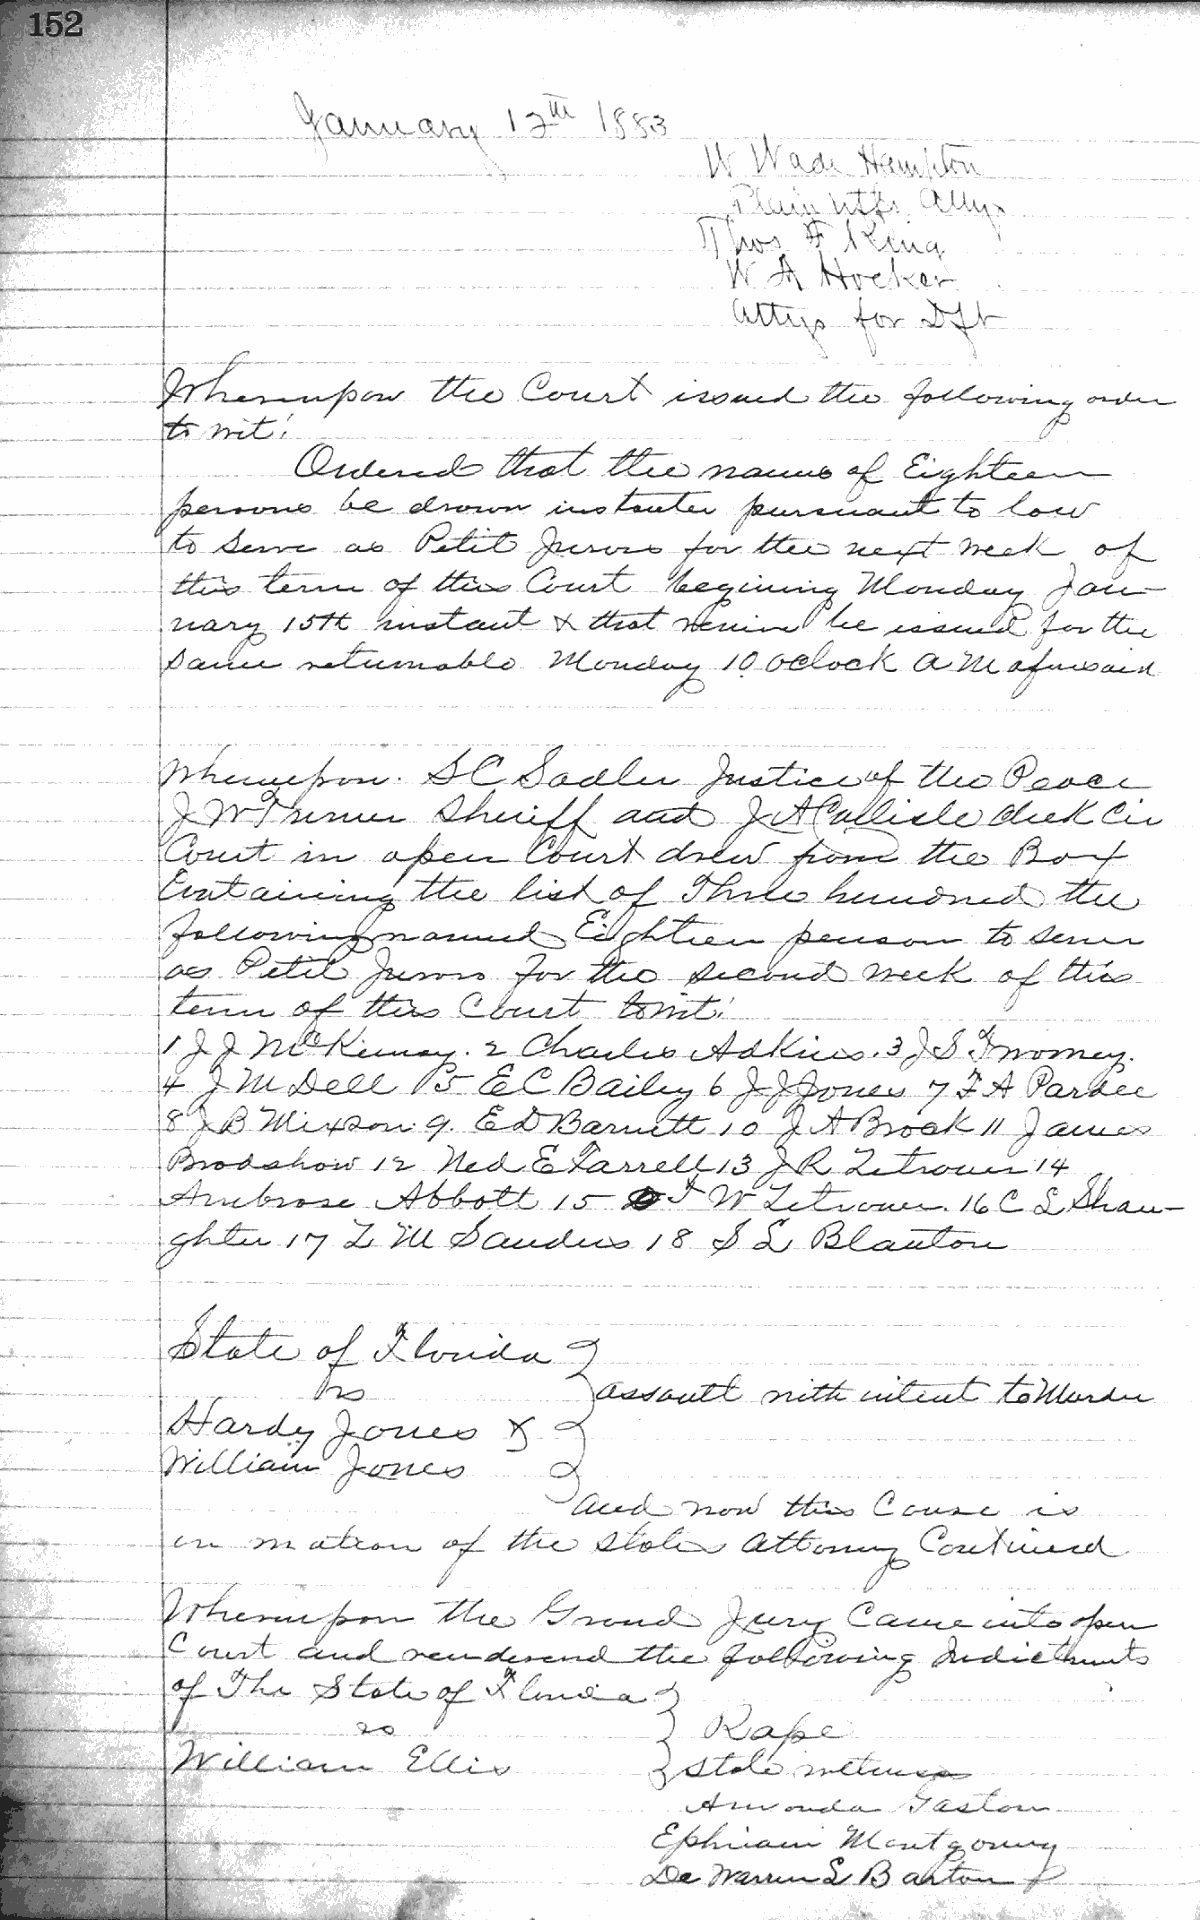 152
January 12th 1883
W Wade Hampton
Plaintffs Attys
Thos F King
W A Hocker
Attys for Dft
Whereupon the Court issued the following order
to wit:
Ordered that the names of Eighteen
persons be drawn instanter pursuant to law
to serve as Petit Jurors for the next week of
this term of this Court begining Monday Jan-
uary 15th instant & that venire be issued for the
same returnable Monday 10 oclock A M aforesaid
Whereupon. S C Sadler Justice of the Peace
J W Turner Sheriff and J A Carlisle Clerk Cir
Court in open Court drew from the Box
Containing the list of Three hundred the
following named Eighteen person to serve
as Petit Jurors for the second week of this
term of this Court towit:
1 J J McKinney. 2 Charles Adkins. 3 J S
4 J M Dell 5 E C Bailey 6 J J Jones 7 F A Pardee
8 J B Mixson. 9. E D Barnett 10 J A Brook 11 James
Bradshaw 12 Ned E Farrell 13 J R Zetrouer 14
Ambrose Abbott 15 T W Zetrouer. 16 C L Slau-
ghter 17 Z M Sanders 18 S L Blanton
State of Florida
vs
assault with intent to Murder
Hardy Jones &
William Jones
And now this Cause is
on motion of the states Attorney Continued
Whereupon the Grand Jury Came into open
Court and rendered the following Indictments
of The State of Florida
vs
Rape
William Ellis
state witness
Amanda Gaston
Ephriam Montgomery
De Warren L Barton